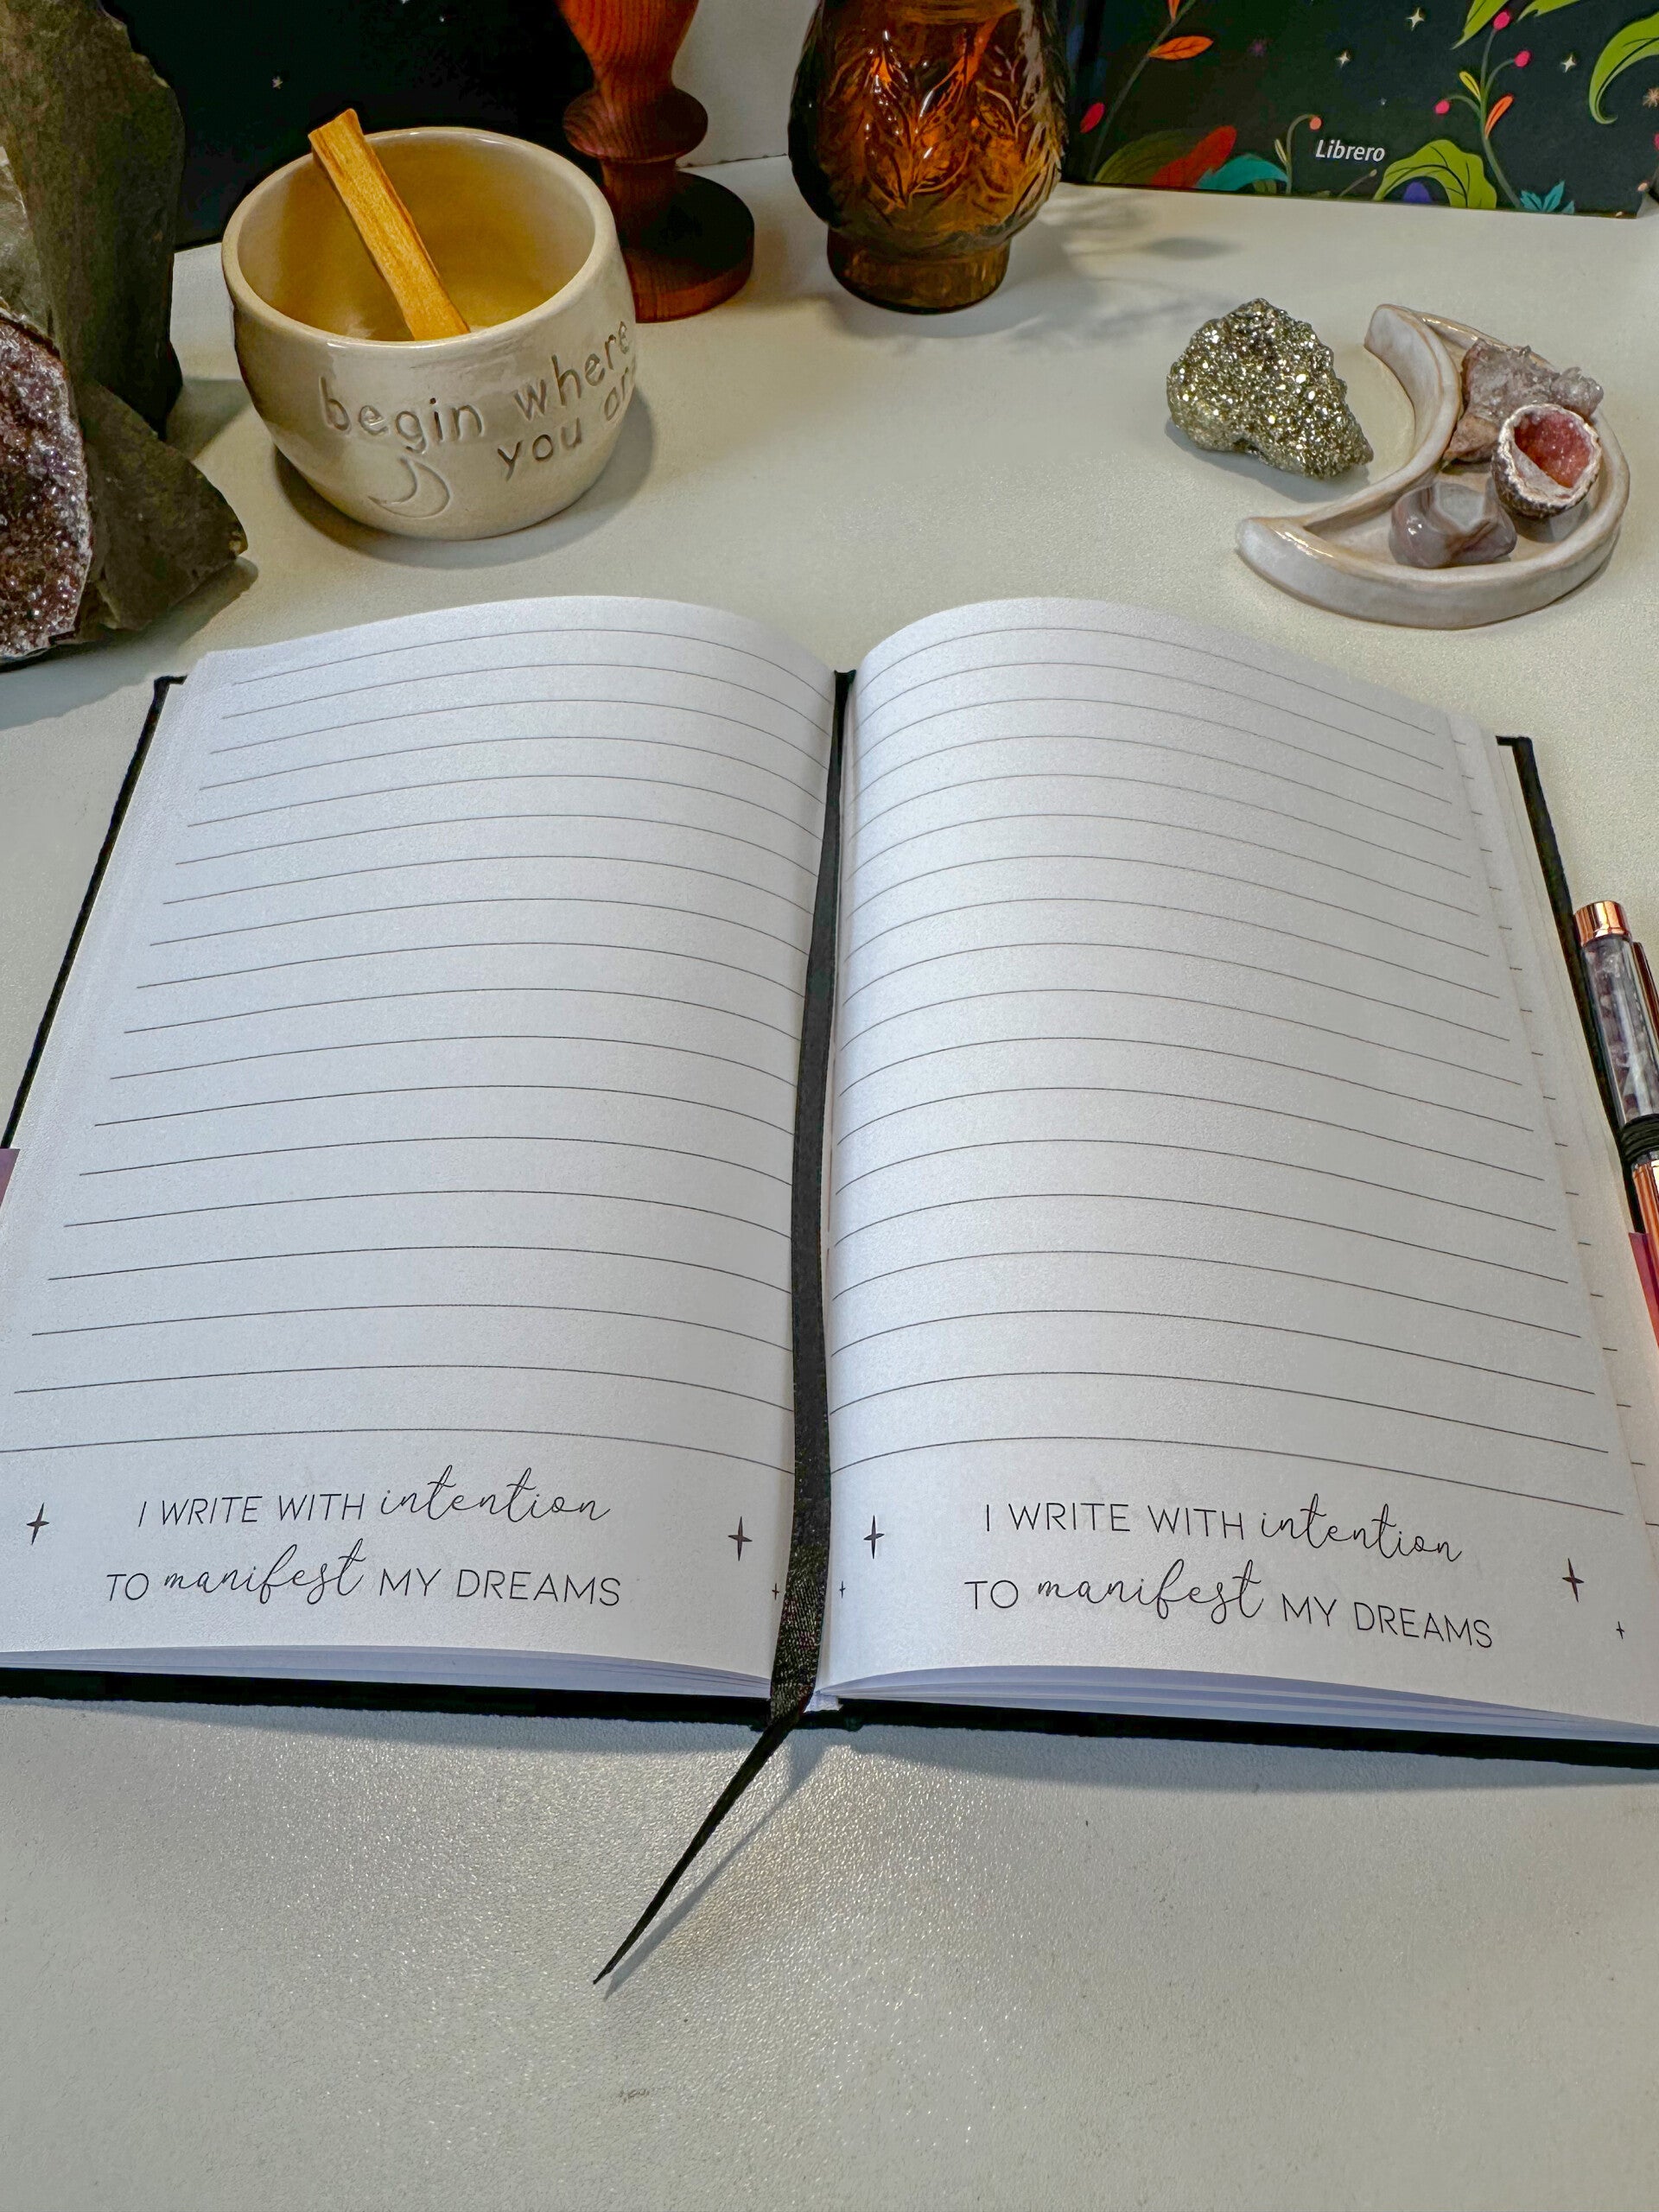 Librero
begin where
you are
I WRITE WITH intention
TO manifest MY DREAMS
I WRITE WITH intention
TO manifest MY DREAMS